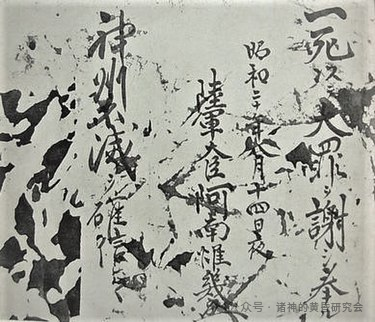 一死以テ大罪ヲ謝シ奉ル
昭和二十年八月十四日夜
陸軍大臣阿南惟幾
神州不滅ヲ確信シツヽ
公众号 · 诸神的黄昏研究会